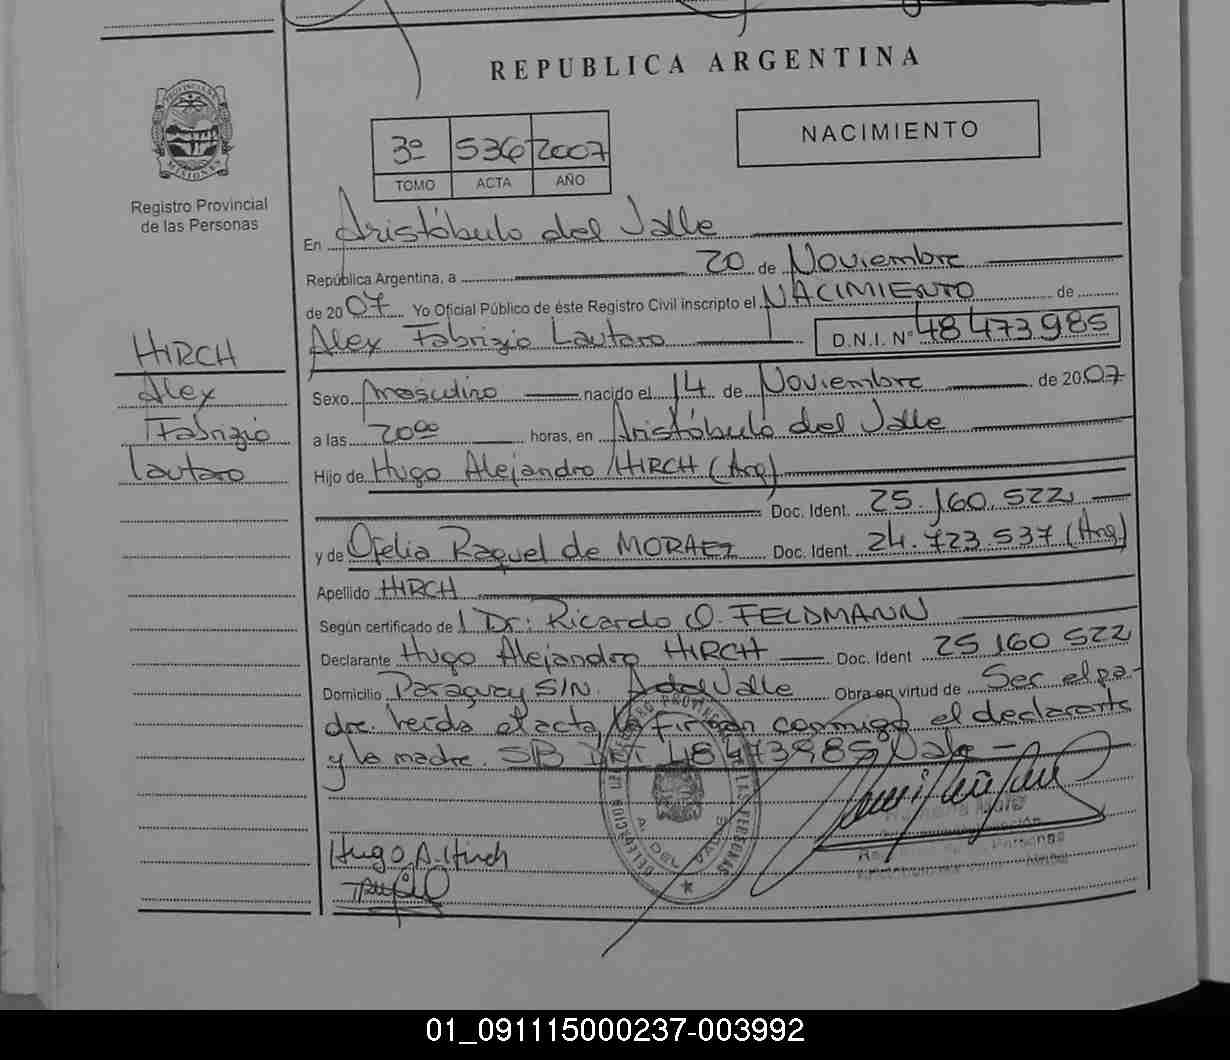 REPUBLICA ARGENTINA
PROVINCIA DE MISIONES
Registro Provincial
de las Personas
3º 536 2007
TOMO ACTA AÑO
NACIMIENTO
En Aristóbulo del Valle
República Argentina, a 20 de Noviembre
de 2007 Yo Oficial Público de éste Registro Civil inscripto el NACIMIENTO de
Alex Fabrizio Lautaro D.N.I. Nº 48473985
HIRCH
Alex
Fabrizio
Lautaro
Sexo masculino nacido el 14 de Noviembre de 2007
a las 20⁰⁰ horas, en Aristóbulo del Valle
Hijo de Hugo Alejandro HIRCH (Arg)
Doc. Ident. 25.160.522
y de Ofelia Raquel de MORAEZ Doc. Ident. 24.723.537 (Arg)
Apellido HIRCH
Según certificado del Dr: Ricardo O. FELDMANN
Declarante Hugo Alejandro HIRCH Doc. Ident 25 160 522
Domicilio Paraguay S/N. A del Valle Obra en virtud de Ser el pa-
dre. leída el acta la firman conmigo el declarante
y la madre. 48473985 Vale -
Hugo A. Hirch
01_091115000237-003992